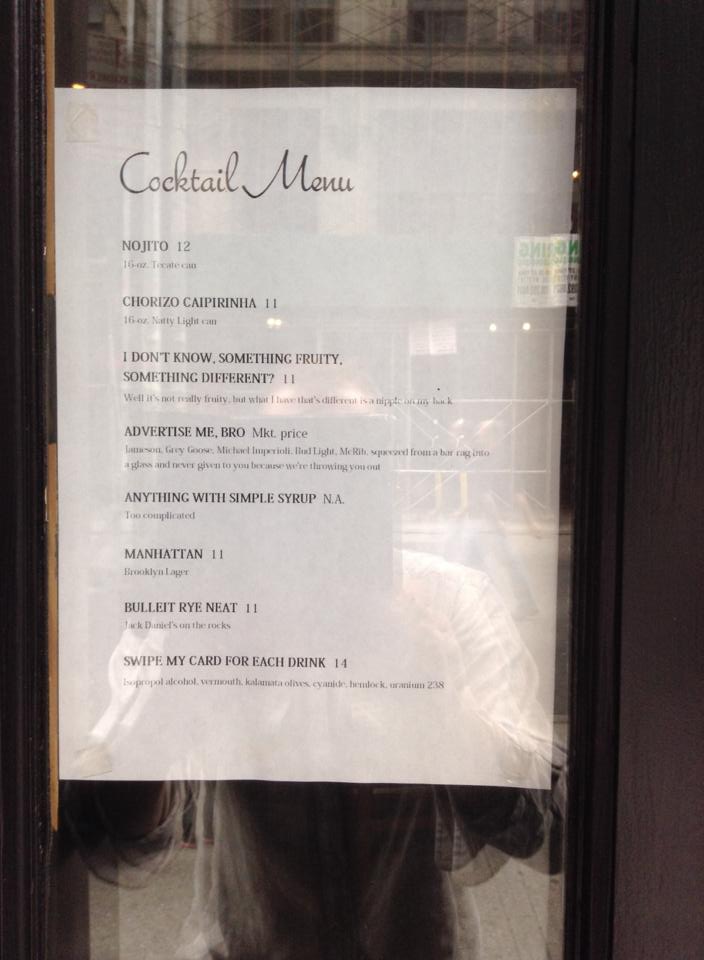 Cocktail Menu
NOJITO 12
16-oz. Tecate can
CHORIZO CAIPIRINHA 11
16-oz. Natty Light can
I DON'T KNOW, SOMETHING FRUITY,
SOMETHING DIFFERENT? 11
Well it's not really fruity, but what I have that's different is a nipple on my back
ADVERTISE ME, BRO Mkt. price
Jameson, Grey Goose, Michael Imperioli, Bud Light, McRib, squeezed from a bar rag into
a glass and never given to you because we're throwing you out
ANYTHING WITH SIMPLE SYRUP N.A.
Too complicated
MANHATTAN 11
Brooklyn Lager
BULLEIT RYE NEAT 11
Jack Daniel's on the rocks
SWIPE MY CARD FOR EACH DRINK 14
Isopropol alcohol, vermouth, kalamata olives, cyanide, hemlock, uranium 238